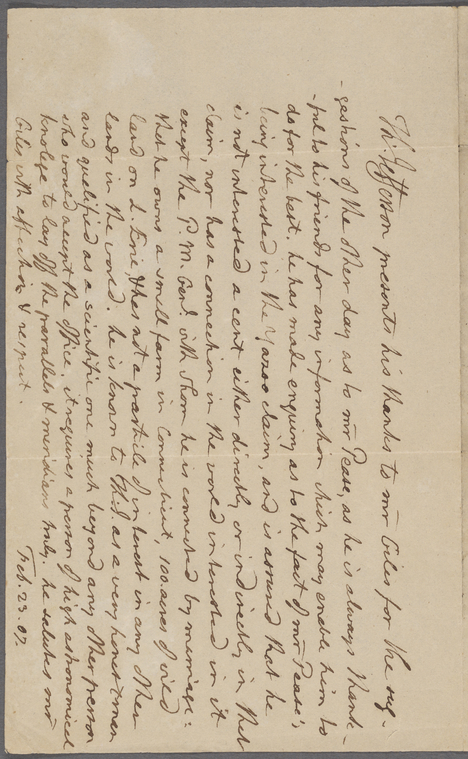 Th: Jefferson presents his thanks to mr Giles for the sug-
-gestions of the other day as to mr Pease, as he is always thank-
-ful to his friends for any information which may enable him to
do for the best. he has made enquiry as to the fact of mr Pease's
being interested in the Yazoo claim, and is assured that he
is not interested a cent either directly or indirectly in that
claim, nor has a connection in the world interested in it
except the P. M. Genl. with whom he is connected by marriage:
that he owns a small farm in Connecticut, 100. acres of wild
land on L. Erie, & has not a particle of interest in any other
lands in the world. he is known to Th:J. as a very honest man
and qualified as a scientific one much beyond any other person
who would accept the office, it requires a person of high astronomical
knolege to lay off the parallels & meridians truly. he salutes mr
Giles with affection & respect.
Feb. 23. 07.